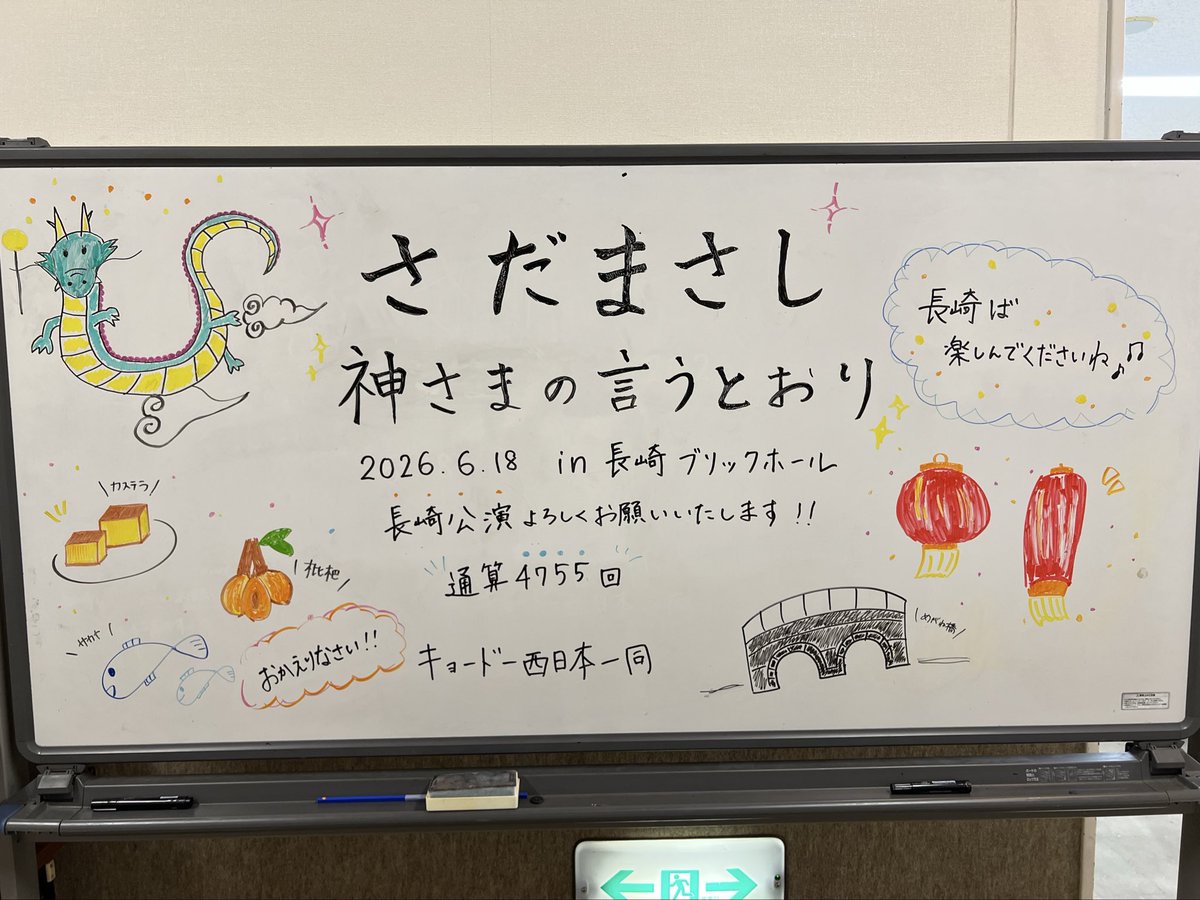 さだまさし
神さまの言うとおり
2026.6.18 in 長崎ブリックホール
長崎公演よろしくお願いいたします!!
通算4755回
キョードー西日本一同
長崎ば
楽しんでくださいね♪♫
\カステラ/
\枇杷/
\サカナ/
おかえりなさい!!
\めがね橋/